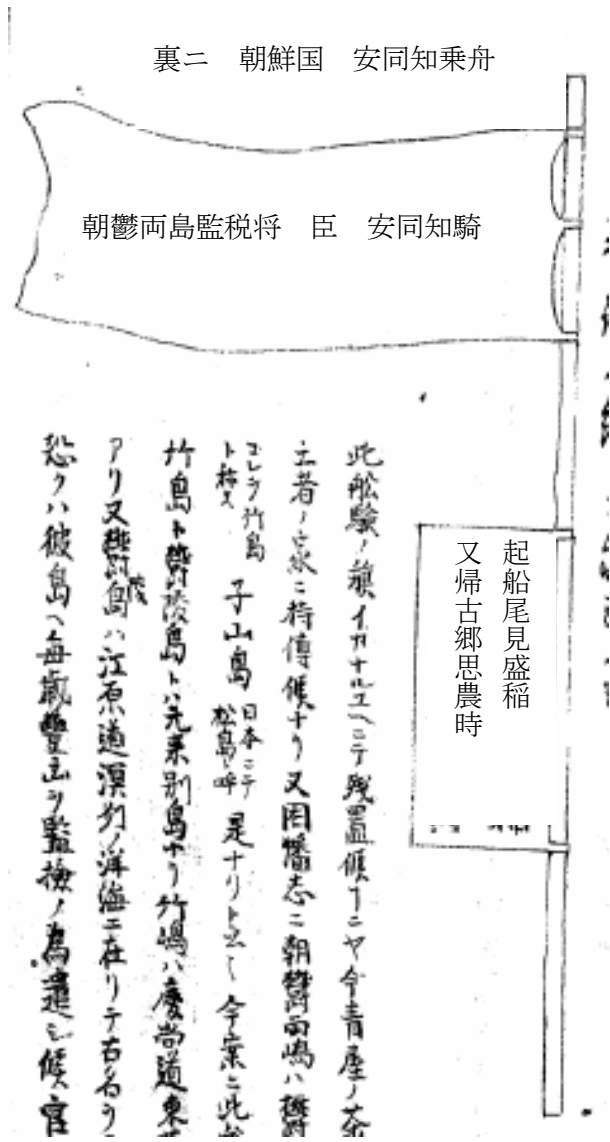 裏ニ　朝鮮国　安同知乗舟
朝鬱両島監税将　臣　安同知騎
起船尾見盛稲
又帰古郷思農時
此舩驗ノ旗イカナルユヘニテ残置候ヿニヤ今青屋ノ
云者ノ家ニ持傳候ナリ又因幡志ニ朝鬱両嶋ハ鬱
コレヲ竹島ト称ス 子山島 日本ニテ松島ト呼 是ナリト云々今案ニ此
竹島ト鬱陵島トハ元来別島ナリ竹嶋ハ慶尚道東
アリ又鬱陵島ハ江原道溟州ノ洋海ニ在リテ古名ヲ
恐クハ彼島ヘ毎歳豊凶ヲ監撿ノ為遣シ候官